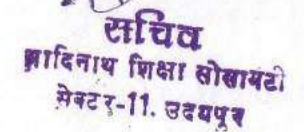 सचिव
आदिनाथ शिक्षा सोसायटी
सेक्टर-11. उदयपुर